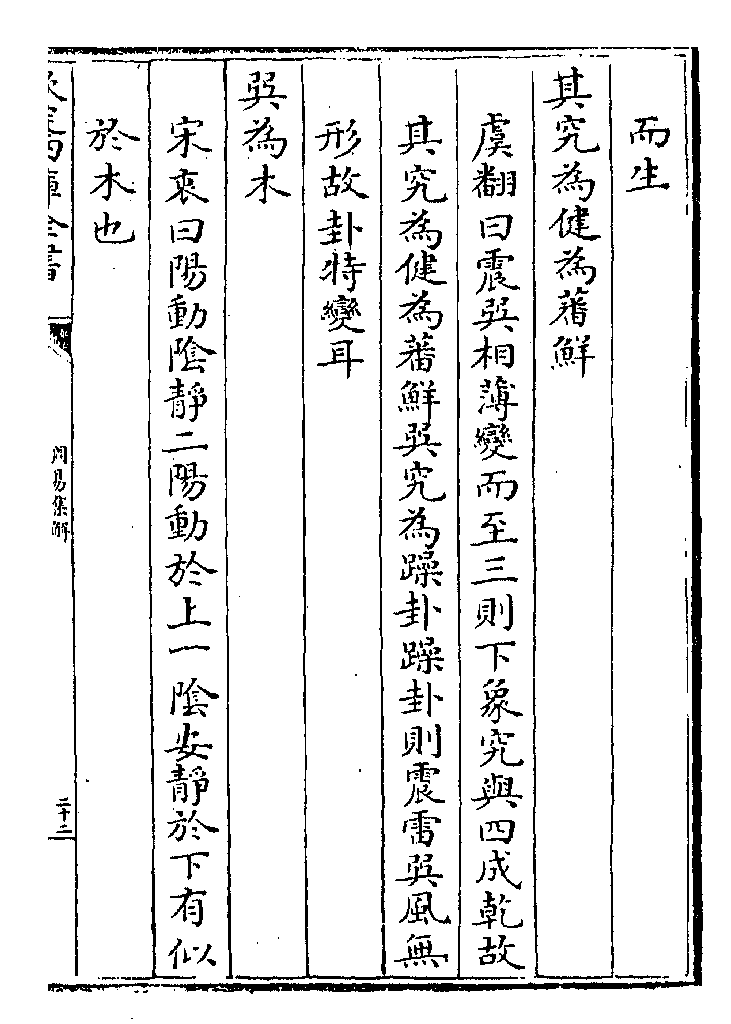 而生
其究為健為蕃鮮
虞翻曰震巽相薄變而至三則下象究與四成乾故
其究為健為蕃鮮巽究為躁卦躁卦則震雷巽風無
形故卦特變耳
巽為木
宋衷曰陽動隂靜二陽動於上一隂安靜於下有似
於木也
欽定四庫全書
周易集解
二十二